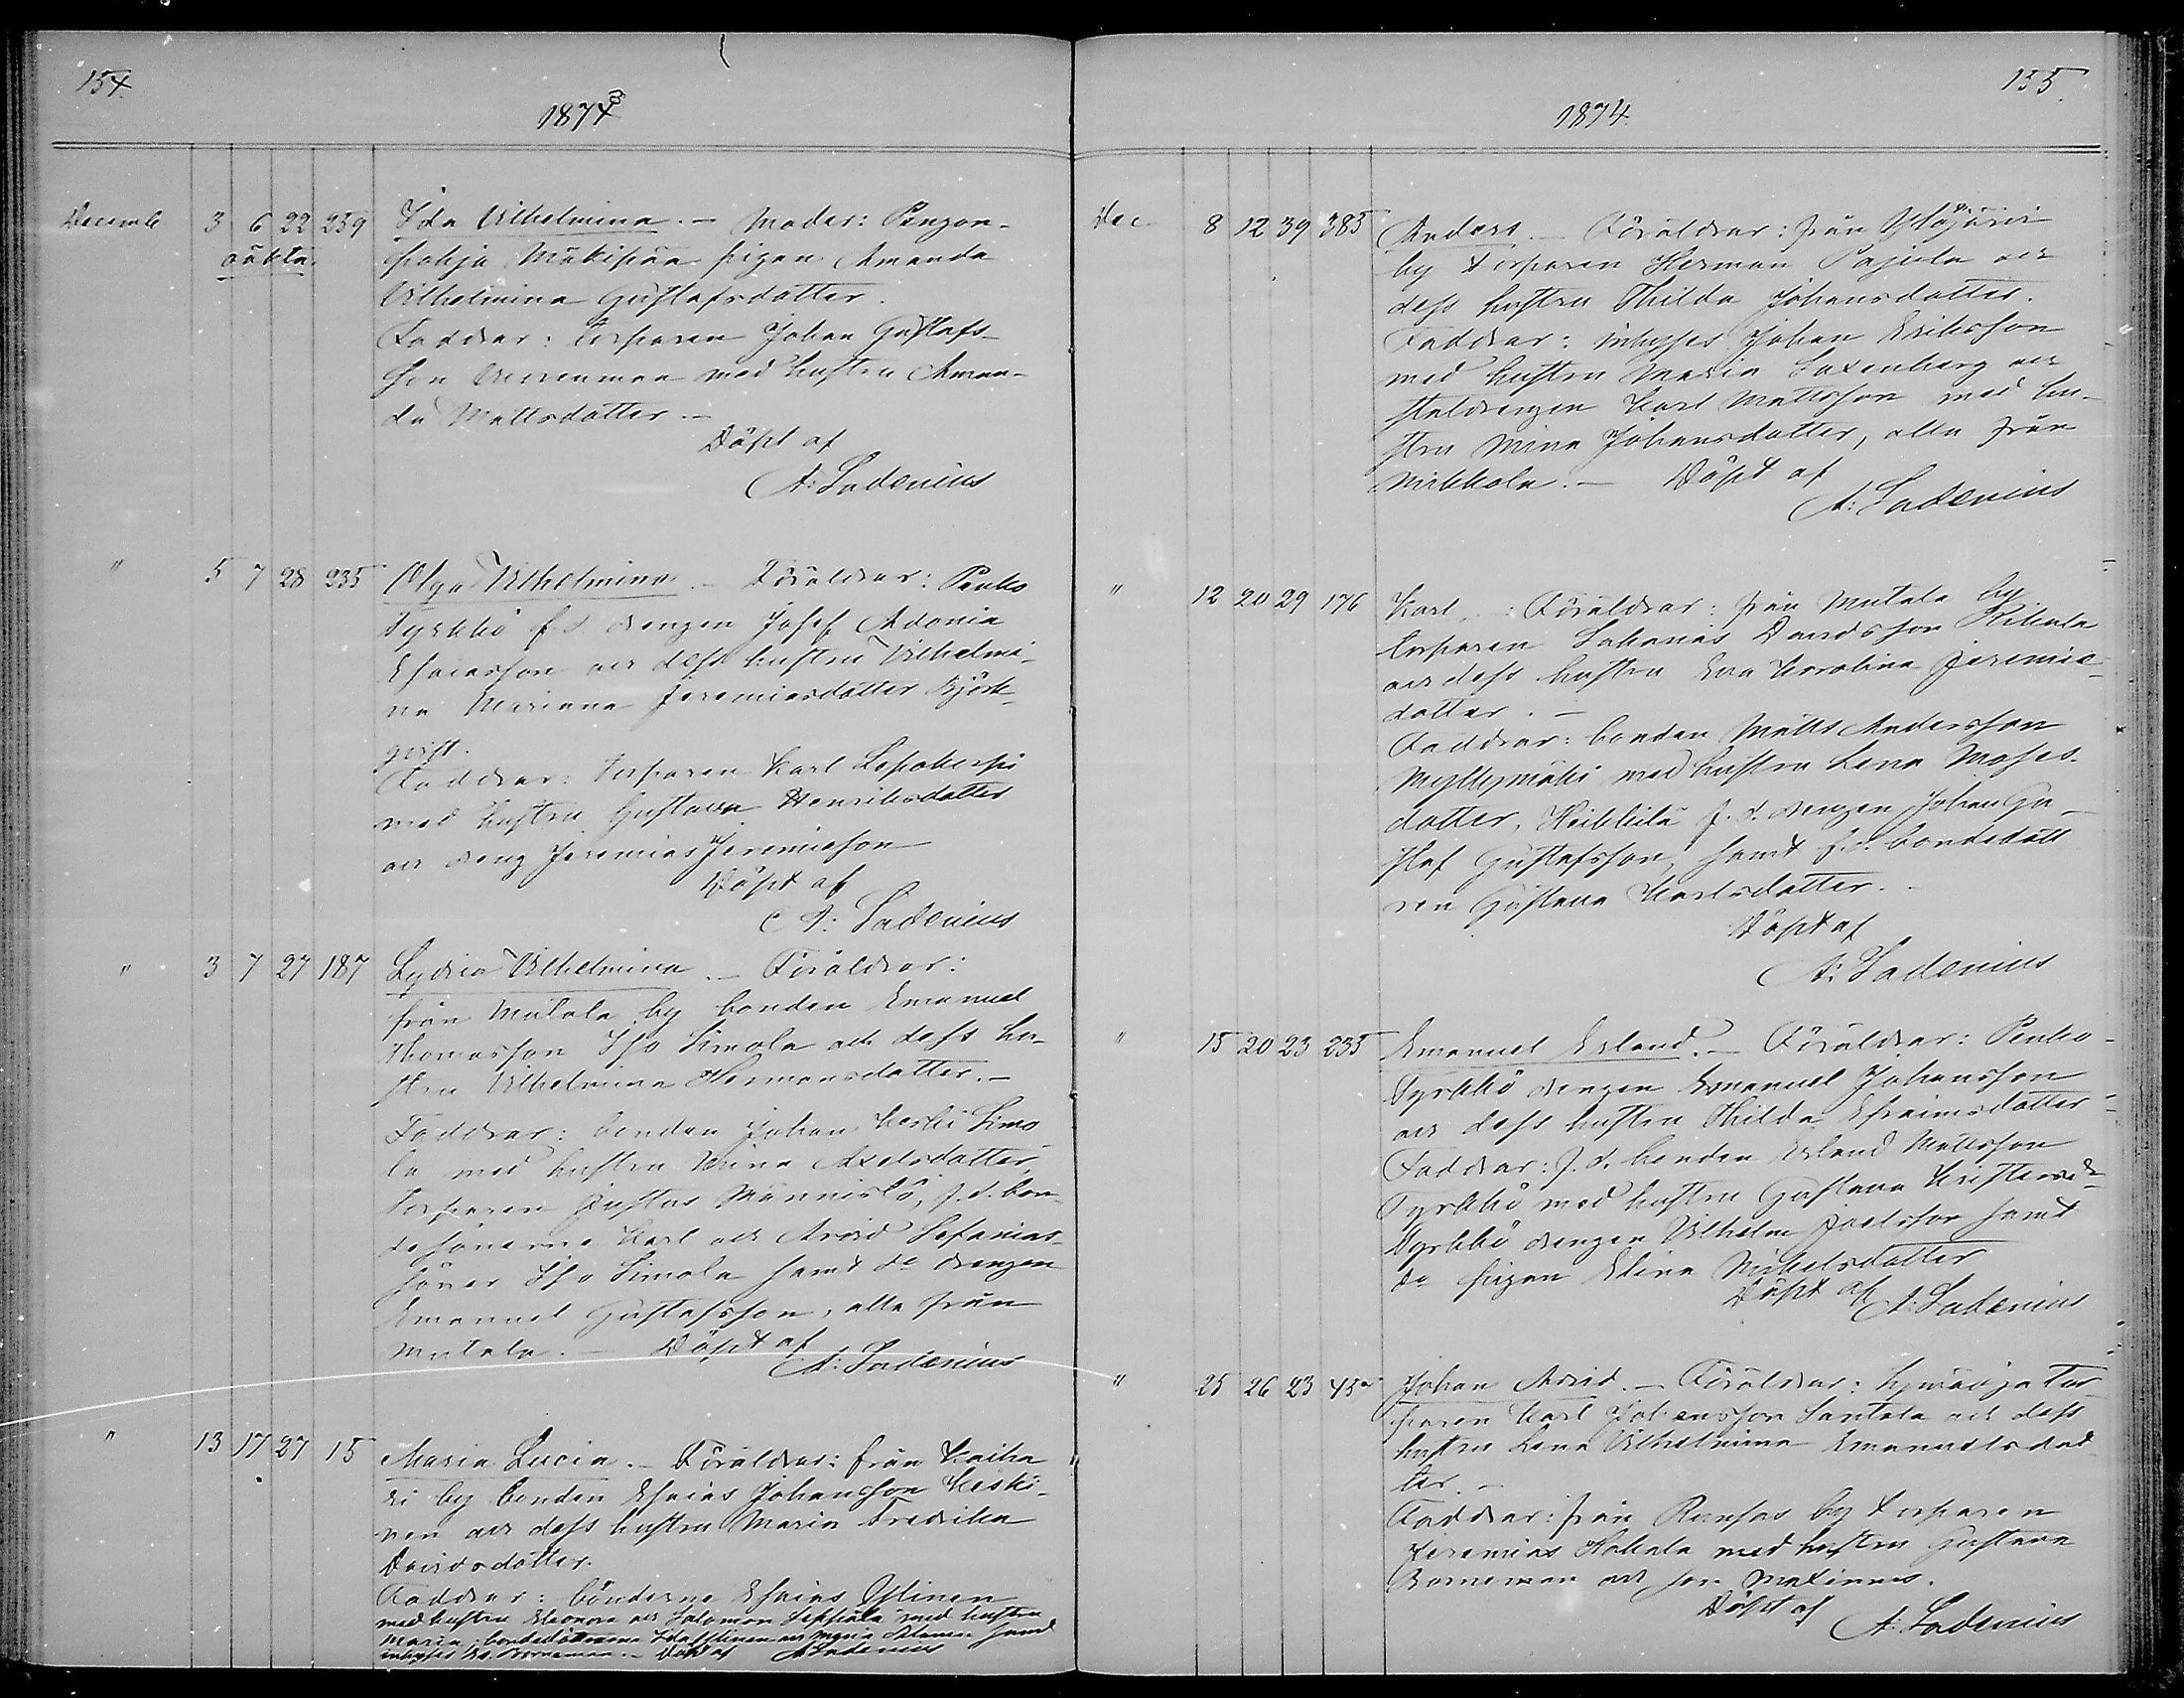 154.
1873
Decemb 3 6 22 239 Ida Vilhelmina. — Moder: Penzon-
oäkta. pohja Mäkipää pigan Amanda
Vilhelmina Gustafsdotter.
Faddrar: torparen Johan Gustafs-
son med hustru Aman-
da Mattsdotter. —
Döpt af
A: Ladenius
" 5 7 28 235 Olga Vilhelmina. — Föräldrar: Penko
Tyrkkö f.d. drengen Josef Adonia
Esaiasson och dess hustru Vilhelmi-
na Mariana Jeremiasdotter Björk-
qvist.
Faddrar: torparen Karl Lepokorpi
med hustru Gustava Henriksdotter
och dreng Jeremias Jeremieson
Döpt af
A: Ladenius
" 3 7 27 187 Lydia Vilhelmina. — Föräldrar:
från Mutala by bonden Emanuel
Thomasson Iso Simola och dess hu-
stru Vilhelmina Hermansdotter. —
Faddrar: bonden Johan Keski Simo
la med hustru Mina Axelsdotter,
torparen Justus Männistö, f.d. bon-
desönerne Karl och Arvid Sefanias-
söner Iso Simola samt do drengen
Emanuel Gustafsson, alla från
Mutala. — Döpt af
A: Ladenius
" 13 17 27 15 Maria Lucia. — Föräldrar: från Kaiha
ri by bonden Esaias Johansson Keski-
nen och dess hustru Maria Fredrika
Davidsdotter.
Faddrar: bönderne Esaias Ylinen
med hustru Eleonora och Salomon Seppälä med hustru
Maria, bondedöttrarna Ida Ylinen och Maria samt
inhyses Borneman. — Döpt af A Ladenius
155.
1874.
Dec 8 12 39 385 Anders. — Föräldrar: från Ylöjärvi
by torparen Herman Pajula och
dess hustru Thilda Johansdotter.
Faddrar: inhyses Johan Eriksson
med hustru Maria Saxenberg och
staldrengen Karl Mattsson med hu-
stru Mina Johansdotter, alla från
Mikkola. — Döpt af
A: Ladenius
" 12 20 29 176 Karl. — Föräldrar: från Mutala by
torparen Sakarias Davidsson Rikala
och dess hustru Eva Karolina Jeremie-
dotter. —
Faddrar: bonden Matts Andersson
Myllymäki med hustru Lena Moses-
dotter, Heikkilä f.d. drengen Johan Gu-
staf Gustafsson, samt f.d. bondedött
ren Gustava Karlsdotter.
Döpt af
A: Ladenius
" 15 20 23 235 Emanuel Erland. — Föräldrar: Penko-
Tyrkkö drengen Emanuel Johansson
och dess hustru Thilda Efraimsdotter
Faddrar: f.d. bonden Erland Mattsson
Tyrkkö med hustru Gustava Kristersd:r
Tyrkkö drengen Vilhelm Joelsson samt
do pigan Elina Mikelsdotter
Döpt af A: Ladenius
" 25 26 23 45 Johan Arvid. — Föräldrar: tor-
paren Karl Johansson Santala och dess
hustru Lena Vilhelmina Emanuelsdot
ter. —
Faddrar: från Runsas by torparen
Jeremias Hakala med hustru Gustava
Borneman och son Maximus.
Döpt af
A: Ladenius